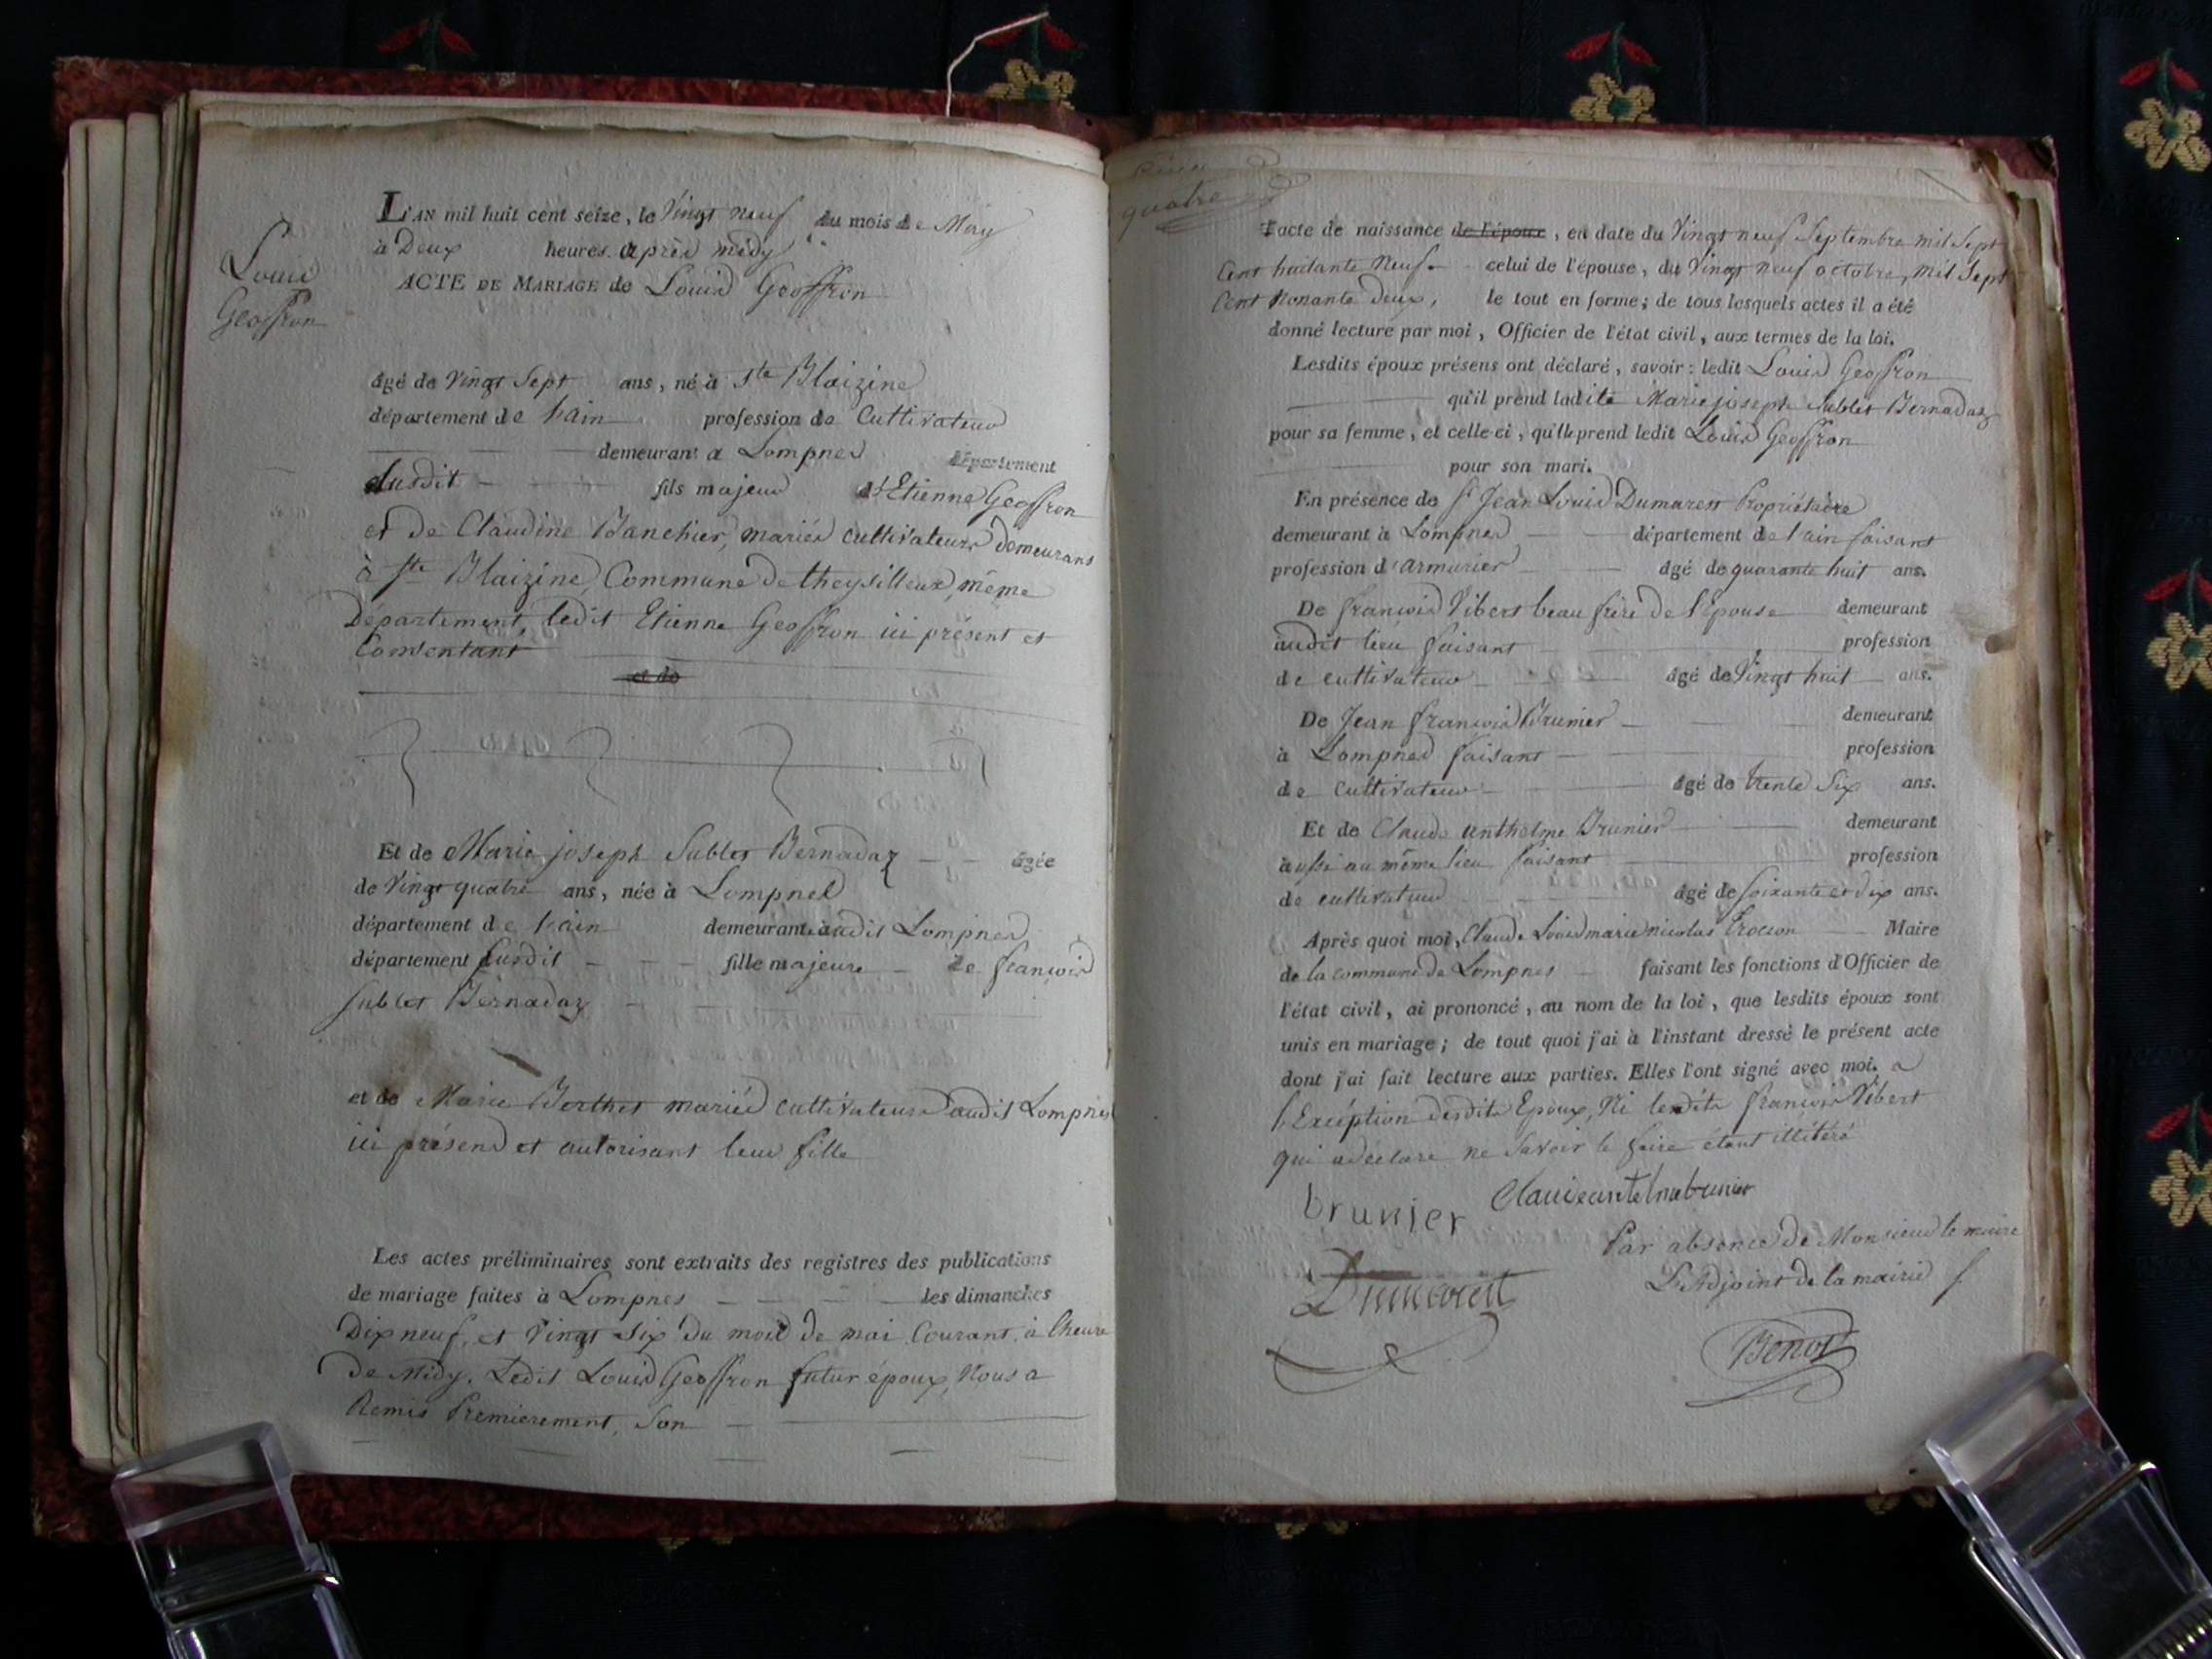 Louis
Geoffron
L'AN mil huit cent seize, le Vingt neuf du mois de May
à Deux heures après midy
ACTE DE MARIAGE de Louis Geoffron
âgé de Vingt Sept ans, né à Ste Blaizine
département de l'ain profession de Cultivateur
demeurant a Lompnes département
dusdit fils majeur d'Etienne Geoffron
et de Claudine Banchier, mariés cultivateurs demeurans
à Ste Blaizine, Commune de theysilleux, même
Département, ledit Etienne Geoffron ici présent et
Consentant
et de
Et de Marie joseph Sublet Bernadaz âgée
de Vingt quatre ans, née à Lompnes
département de l'ain demeurante audit Lompnes
département susdit fille majeure de françois
Sublet Bernadaz
et de Marie Berthet mariés cultivateurs audit Lompnes
ici présens et autorisant leur fille
Les actes préliminaires sont extraits des registres des publications
de mariage faites à Lompnes les dimanches
Dix neuf, et Vingt Six du mois de mai Courant, à lheure
de Midy. Ledit Louis Geoffron futur époux, Nous a
Remis Premierement, Son
quatre
l'acte de naissance de l'époux, en date du Vingt neuf Septembre mil Sept
Cent huitante Neuf. celui de l'épouse, du Vingt neuf octobre, mil Sept
Cent Nonante deux, le tout en forme; de tous lesquels actes il a été
donné lecture par moi, Officier de l'état civil, aux termes de la loi.
Lesdits époux présens ont déclaré, savoir: ledit Louis Geoffron
qu'il prend ladite Marie joseph Sublet Bernadaz
pour sa femme, et celle-ci, qu'elle prend ledit Louis Geoffron
pour son mari.
En présence de Sr Jean Louis Dumarest Propriétaire
demeurant à Lompnes département de l'ain faisant
profession d'armurier âgé de quarante huit ans.
De françois Vibert beau frère de l'Epouse demeurant
audit lieu faisant profession
de cultivateur âgé de Vingt huit ans.
De Jean françois Brunier demeurant
à Lompnes faisant profession
de cultivateur âgé de trente Six ans.
Et de Claude anthelme Brunier demeurant
aussi au même lieu faisant profession
de cultivateur âgé de soixante et dix ans.
Après quoi moi, Claude Louis marie nicolas Maire
de la commune de Lompnes faisant les fonctions d'Officier de
l'état civil, ai prononcé, au nom de la loi, que lesdits époux sont
unis en mariage; de tout quoi j'ai à l'instant dressé le présent acte
dont j'ai fait lecture aux parties. Elles l'ont signé avec moi. a
l'Exception desdits Epoux, Ni françois Vibert
qui a déclaré ne Savoir le faire étant illitéré
brunier
Dumarest
Par absence de Monsieur le maire
L'Adjoint de la mairie
Benoit